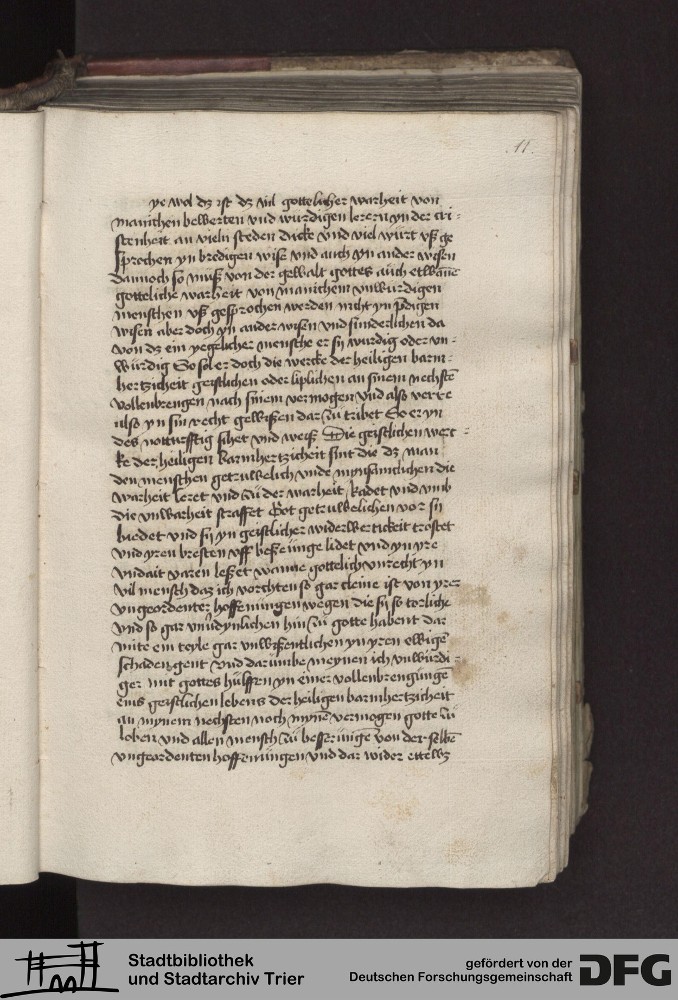 11.
ye wol dz ist dz vil gottelicher warheit von
manichen bewerten vnd wurdigen lerern yn der cri=
stenheit an vieln steden dicke vnd viel würt vß ge
sprochen yn bredigen wise vnd auch yn ander wisen
dannoch so müß von der gewalt gottes auch etwäne
gotteliche warheit von manichem vnwurdigen
menschen vß gesprochen werden nicht yn pdigen
wisen aber doch yn ander wisen vnd sunderlichen da
von dz ein yegelicher mensche er sy wurdig oder vn=
würdig So sol er doch die wercke der heiligen barm=
hertzicheit geistlichen oder liplichen an sinem nechstē
vollenbrengen nach sinem vermogen vnd also verre
also yn sin recht gewißen dar zü tribet So er yn
des notturfftig sihet vnd weiß Die geistlichen werc=
ke der heiligen barmhertzicheit sint die dz man
den menschen getruwelich vnde mynsamclichen die
warheit leret vnd zü der warheit kadet vnd vmb
die vnwarheit straffet Got getruwelichen vor sy
biedet vnd sy yn geistlicher widerwertickeit trostet
vnd yren bresten vff beßerünge lidet vnd yn yre
vndait varen leßet wanne gottelich vnrecht yn
vil mensch daz ich vorchten so gar cleine ist von yre=
vngeordenter hoffenungen wegen die sy so torliche
vnd so gar hin zü gotte habent dar
mite ein teyle gar vnwißentlichen yn yren ewigē
schaden gent vnd darümbe meynen ich vnwürdi=
ger mit gottes hülffen yn einer vollenbrengungē
eins geistlichen lebens der heiligen barmhertzicheit
an mynem nechsten noch mynē vermogen gotte zü
loben vnd allen mensch zü besserünge von der selbē
vngeordenten hoffenüngen vnd dar wider ettelz
Stadtbibliothek
und Stadtarchiv Trier
gefördert von der
Deutschen Forschungsgemeinschaft
DFG